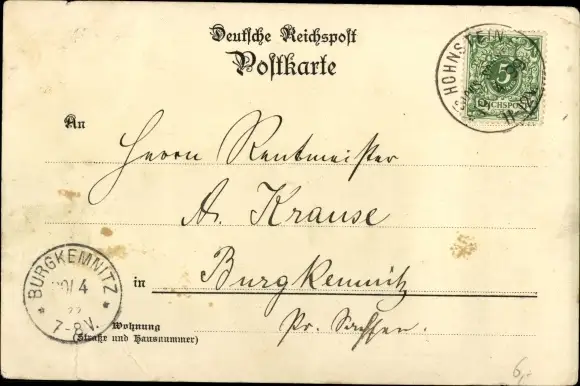 Deutsche Reichspost
Postkarte
HOHNSTEIN
5
REICHSPOST
An
Herrn Rentmeister
A. Krause
in Burgkemnitz
Pr. Sachsen.
BURGKEMNITZ
/4
7-8V.
Wohnung
(Straße und Hausnummer)
6,